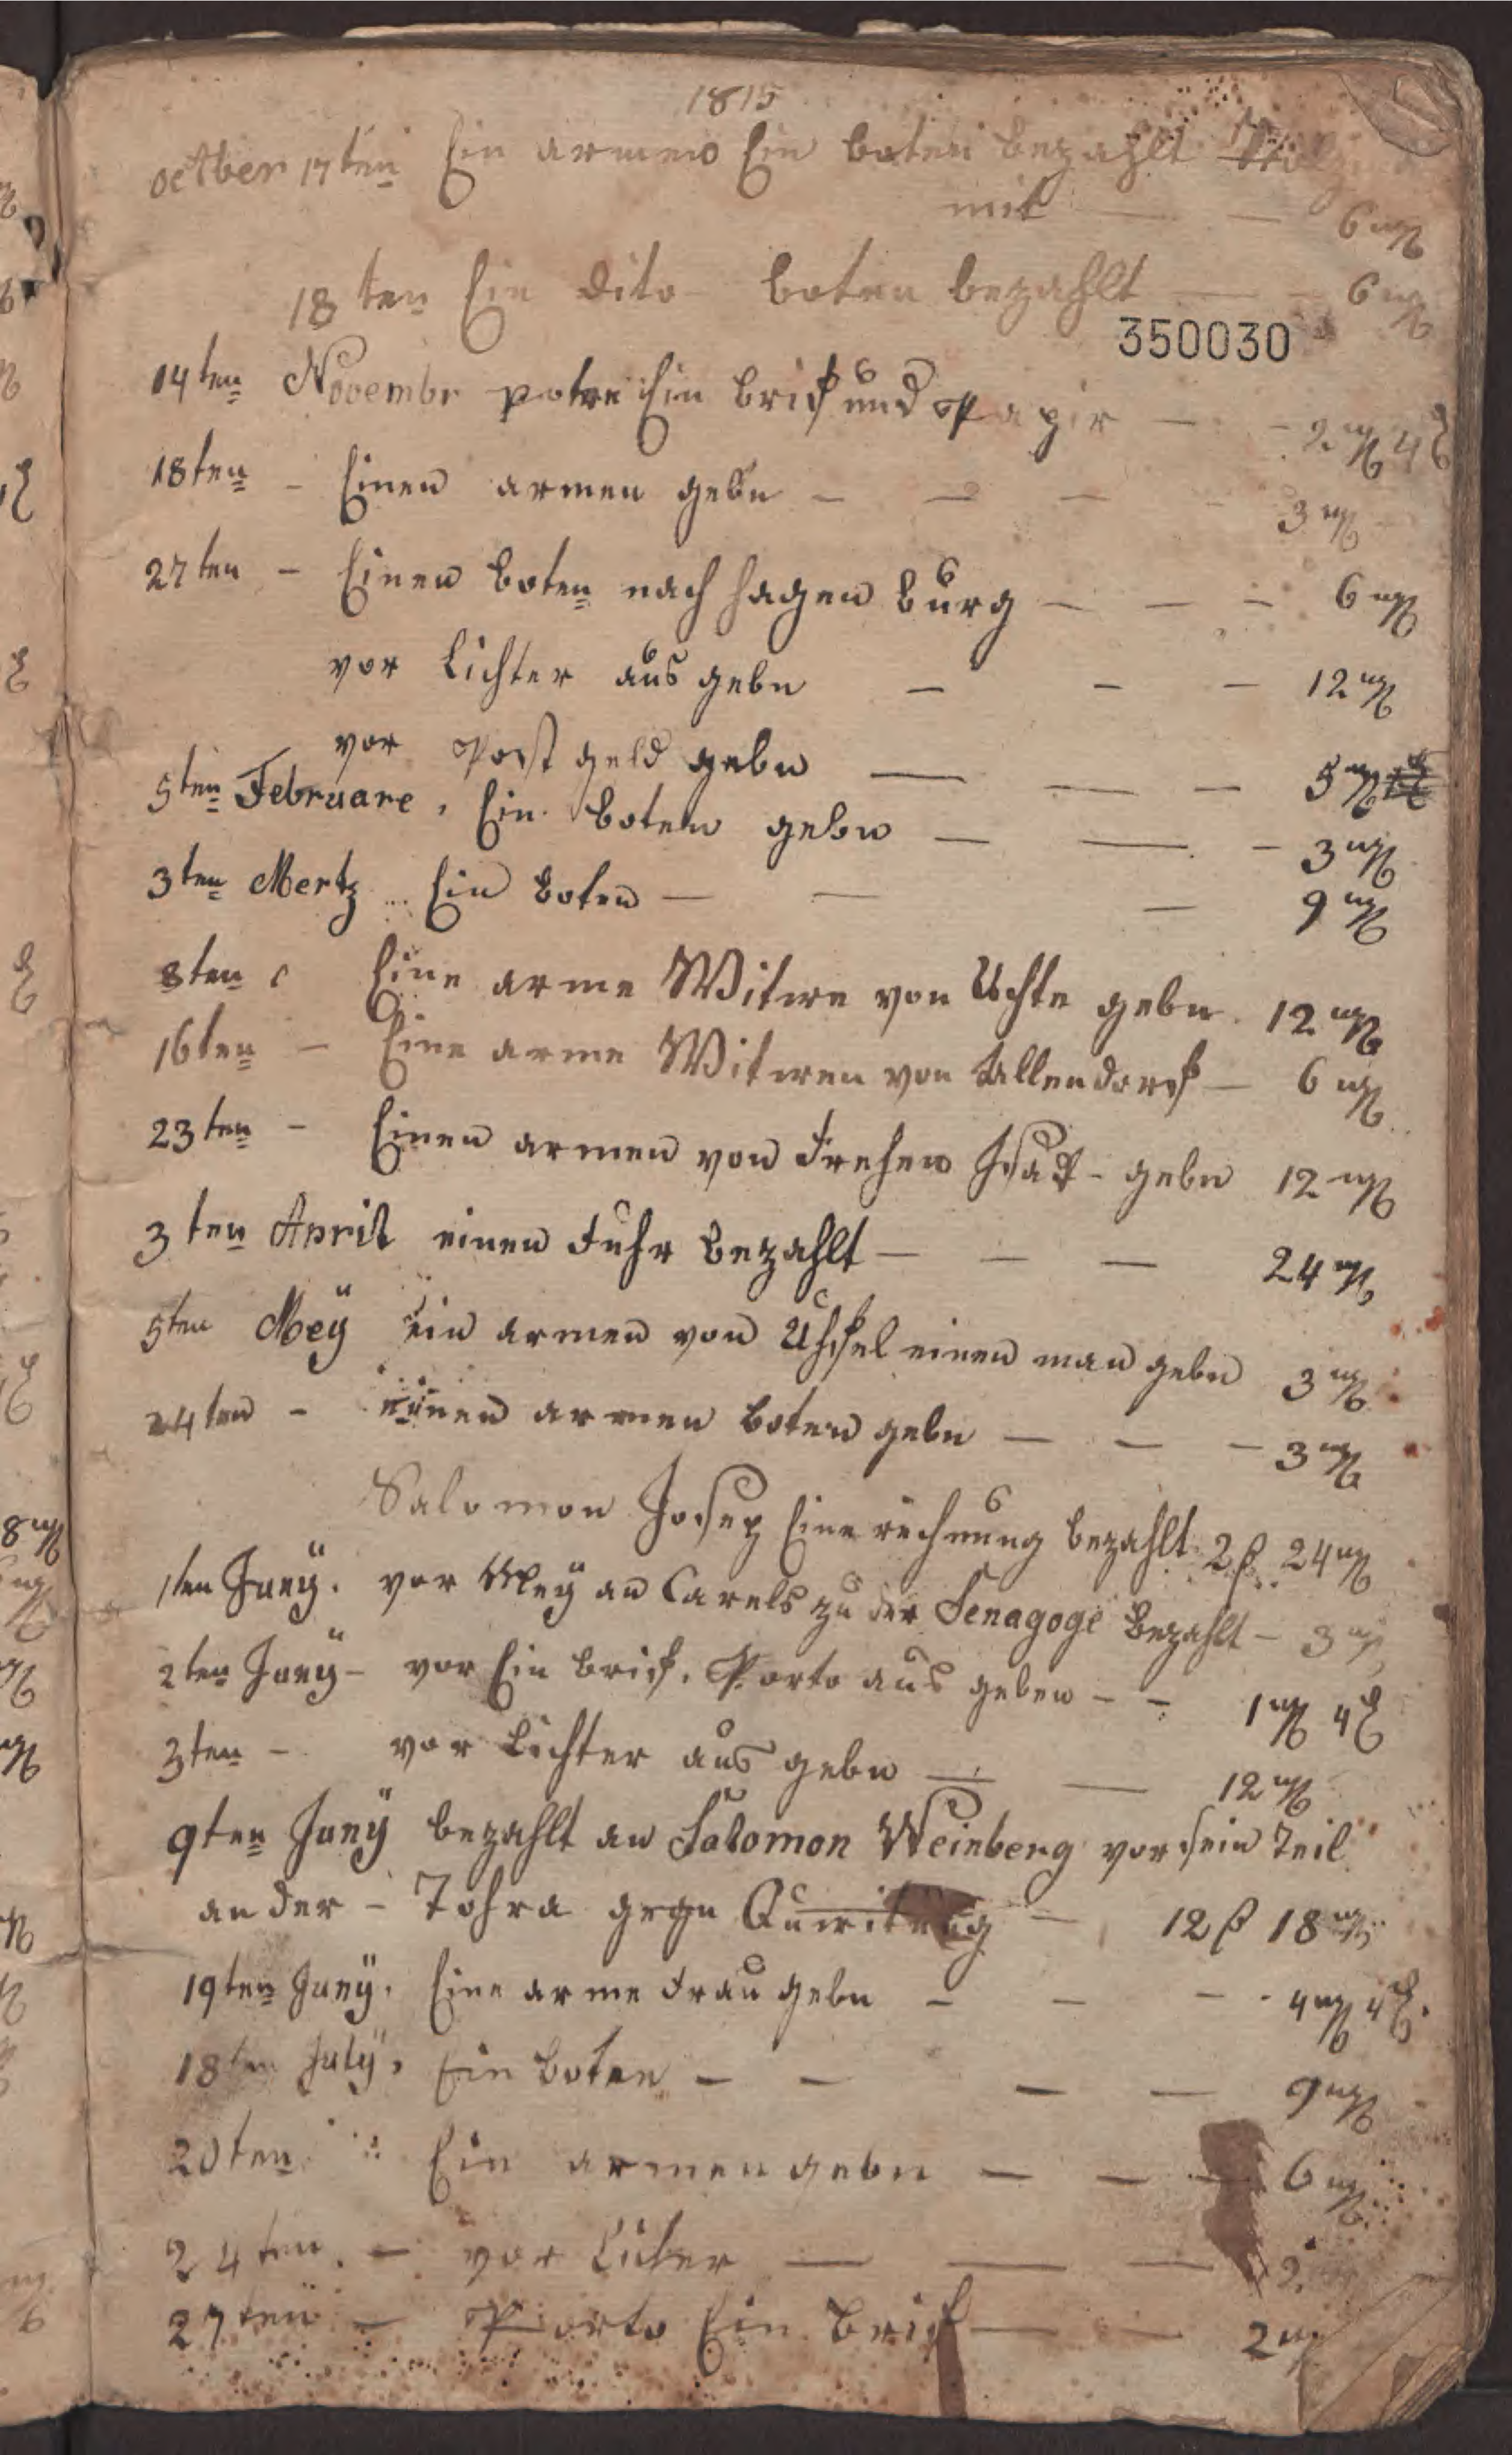 1815
october 17ten Ein armen Ein boten bezahlt
mit — — 6 mg
18ten Ein dito boten bezahlt — 6 mg
350030
14ten Novembr potre Ein brif und Papir — - 2 mg 4 d
18ten - Einen armen gebn - - - 3 mg
27ten - Einen boten nach hagen burg — — - 6 mg
vor Lichter aus gebn - - - 12 mg
vor Post geld gebn — — - 5 mg
5ten Februare, Ein boten gebn — — - 3 mg
3ten Mertz Ein boten — — — 9 mg
8ten Eine arme Witwe von Uchte gebn 12 mg
16ten - Eine arme Witwen von Allendorf — 6 mg
23ten - Einen armen von Frehen gebn 12 mg
3ten April einen Fuhr bezahlt — — — 24 mg
5ten Meÿ ein armen von einen man gebn 3 mg
24ten - einen armen boten gebn — — - 3 mg
Salomon Josep Eine rechnung bezahlt 2 β 24 mg
1ten Junÿ. vor Meÿ an Carels zu der Senagoge bezahlt - 3 mg
2ten Junÿ - vor Ein brif. Porto aus geben - - 1 mg 4 d
3ten - vor Lichter aus gebn — — 12 mg
9ten Junÿ bezahlt an Salomon Weinberg vor sein Teil
an der - Tohra gegn Quwitung — 12 β 18 mg
19ten Junÿ. Eine arme Frau gebn - - - 4 mg 4 d.
18ten Julÿ, Ein boten - - — — 9 mg
20ten Ein armen gebn — — - 6 mg
24ten. - vor — — — 2
27ten - Porto Ein brif — — 2 mg